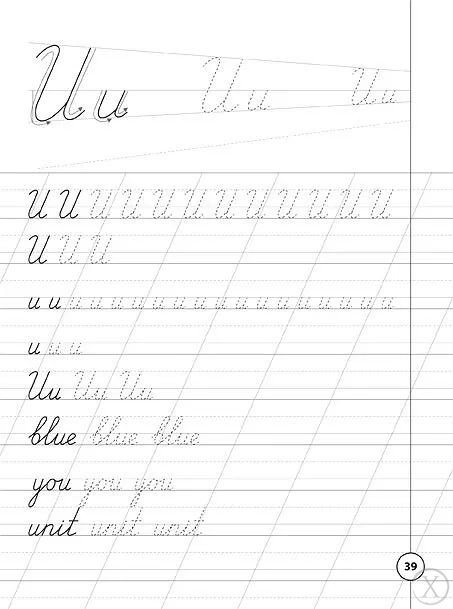 Uu Uu Uu
U U U U U U U U U U U U
U U U
u u u u u u u u u u u u u u u u u u
u u u
Uu Uu Uu
blue blue blue
you you you
unit unit unit
39
X